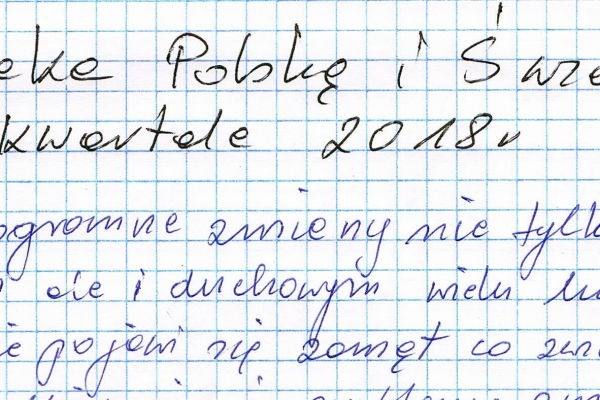 eka Polskę i Świa
kwartale 2018r
ogromne zmiany nie tylk
ale i duchowym wielu lu
ie pojawi się zamęt co